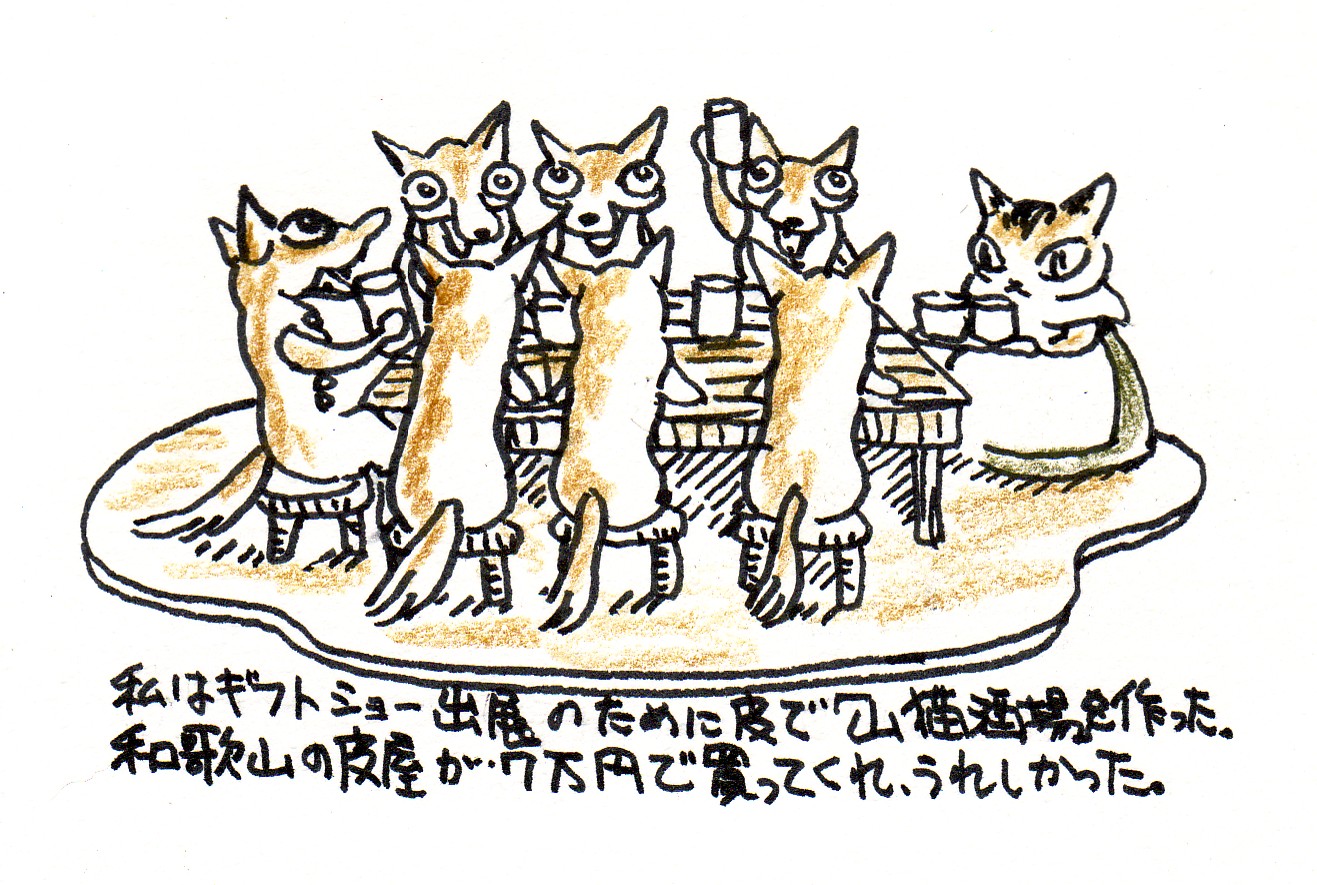 私はギフトショー出展のために皮で「山猫酒場」を作った。
和歌山の皮屋が7万円で買ってくれ、うれしかった。